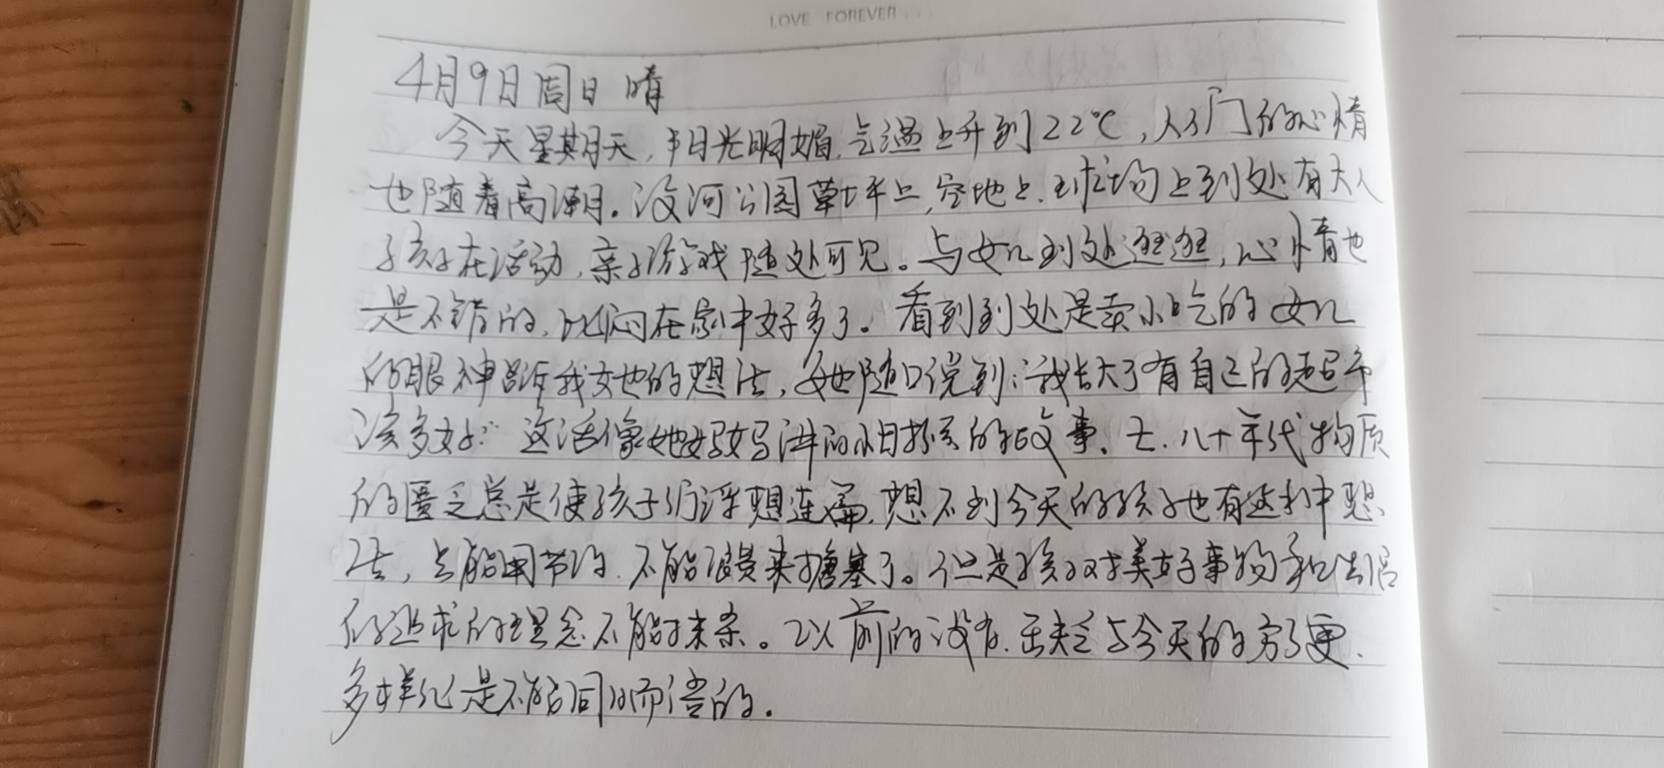 LOVE FOREVER
4月9日 周日 晴
今天星期天,阳光明媚,气温上升到22℃,人们的心情
也随着高潮。汶河公园草坪上,空地上,球场上到处有大人
孩子在活动,亲子游戏随处可见。与女儿到处逛逛,心情也
是不错的,比闷在家中好多了。看到到处是卖小吃的女儿
的眼神告诉我女她的想法,她随口说到:“我长大了有自己的超市
该多好!”这话像她妈妈讲的小时候的故事,七、八十年代物质
的匮乏总是使孩子们浮想连篇,想不到今天的孩子也有这种想
法,只能用节约、不能浪费来搪塞了。但是孩子对美好事物和生活
的追求的理念不能抹杀。以前的没有、缺乏与今天的方便、
多样化是不能同日而语的。